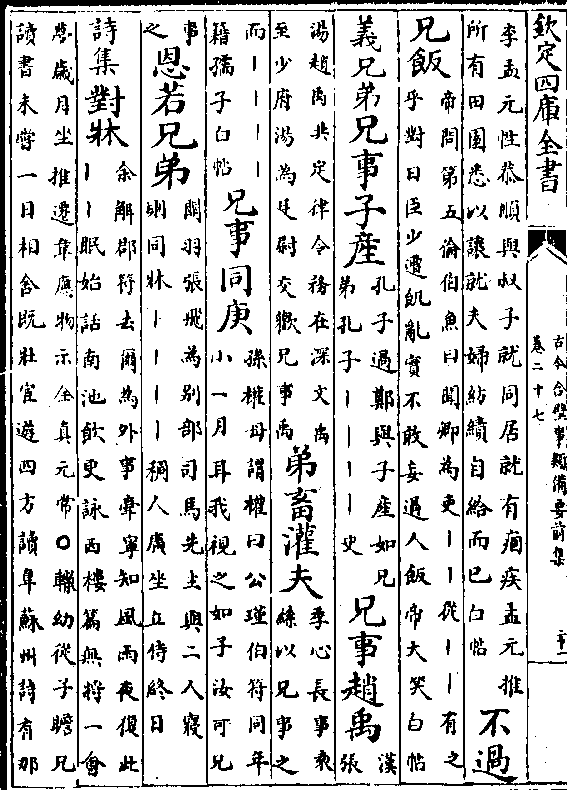 欽定四庫全書
古今合璧事類備要前集
卷二十七
李孟元性恭順與叔子就同居就有痼疾孟元推
所有田園悉以讓就夫婦紡績自給而已白帖
不過
兄飯
帝問第五倫伯魚曰聞卿為吏||從||有之
乎對曰臣少遭飢亂實不敢妄過人飯帝大笑白帖
義兄弟兄事子產
孔子過鄭與子產如兄
弟孔子||||史
兄事趙禹
漢張
湯趙禹共定律令務在深文禹
至少府湯為廷尉交歡兄事禹
弟畜灌夫
季心長事袁
絲以兄事之
而||||
籍孺子白帖
兄事同庚
孫權母謂權曰公瑾伯符同年
小一月耳我視之如子汝可兄
事之
恩若兄弟
關羽張飛為別部司馬先主與二人寢
則同牀||||稠人廣坐立侍終日
詩集
對牀
余解郡符去爾為外事牽寧知風雨夜復此
||眠始話南池飲更詠西樓篇無將一會
易歲月坐推遷韋應物示全真元常○轍幼從子瞻兄
讀書未嘗一日相舍既壯宦遊四方讀韋蘇州詩有那